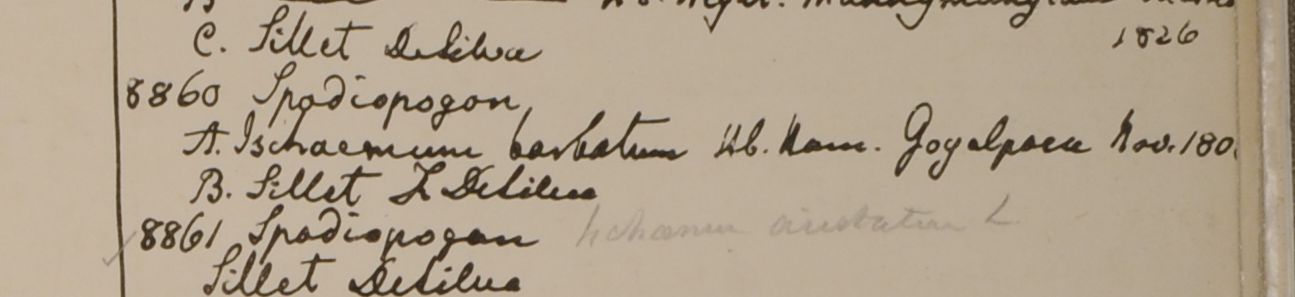 C. Sillet DeSilva
1826
8860 Spodiopogon
A. Ischaemum barbatum Hb. Ham. Gogalpara Nov. 180
B. Sillet F DeSilva
8861 Spodiopogon Ischaemum aristatum L
Sillet DeSilva